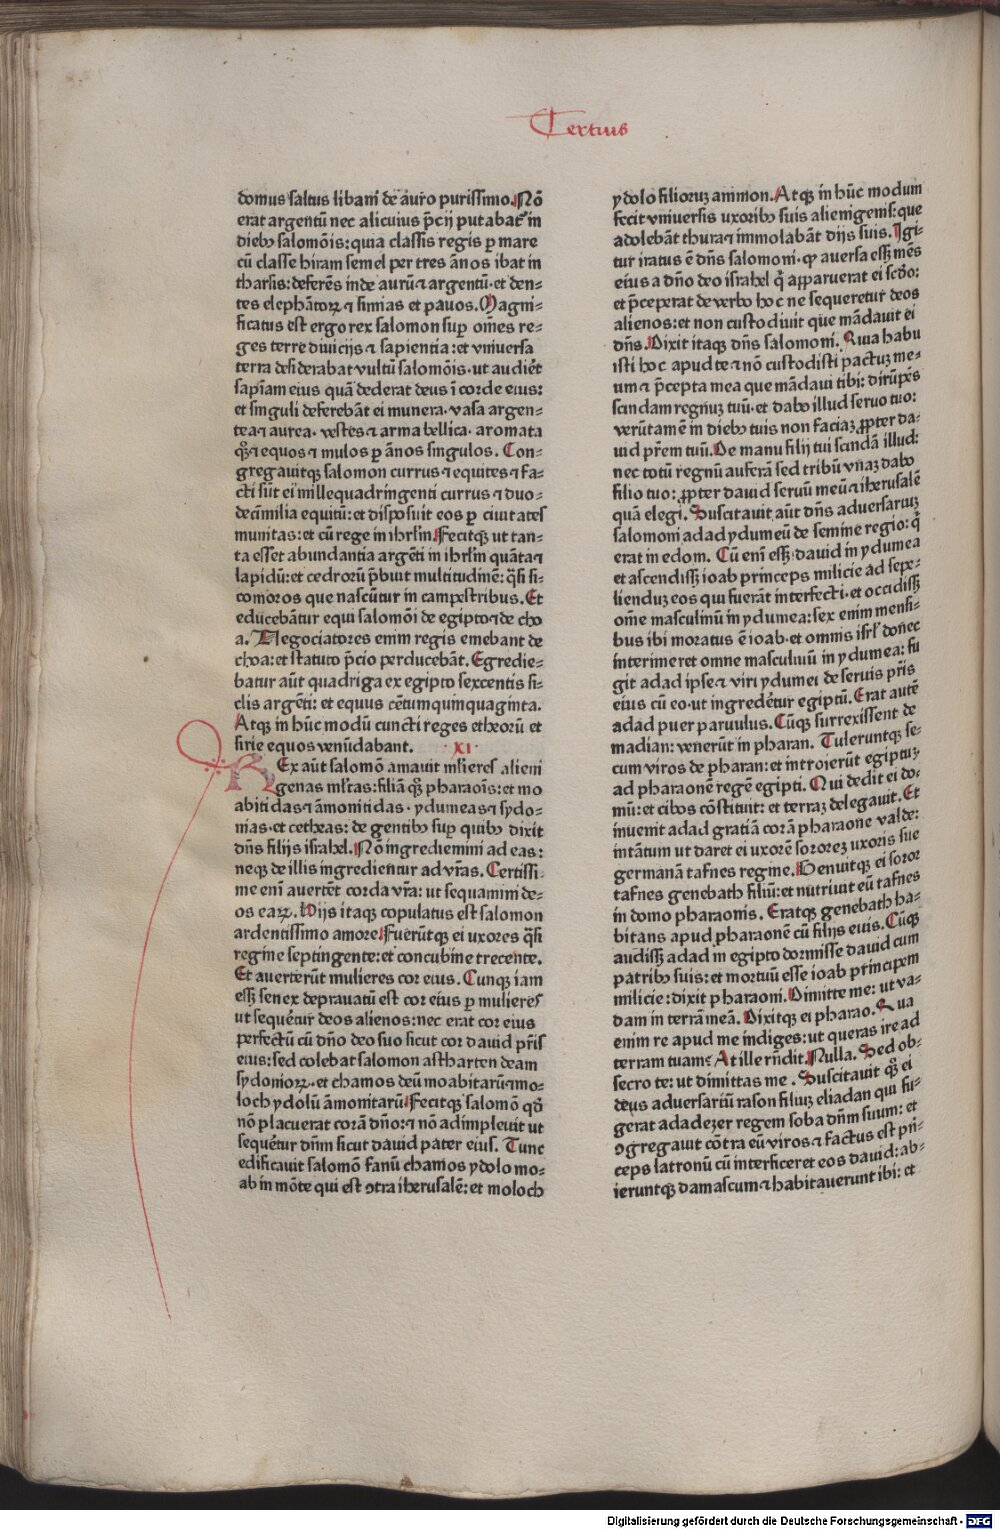 Tertius
domus saltus libani de auro purissimo. Nō
erat argentū nec alicuius p̄cij putabat᷑ in
dieb⁹ salomōis: quia classis regis ꝑ mare
cū classe hiram semel per tres ānos ibat in
tharsis: deferēs inde aurū ⁊ argentū· et den⸗
tes elephātoꝝ ⁊ simias et pauos. Magni⸗
ficatus est ergo rex salomon sup̄ om̄es re⸗
ges terre diuicijs ⁊ sapientia: et vniuersa
terra desiderabat vultū salomōis· ut audiēt
sapiam eius quā dederat deus ī corde eius:
et singuli deferebāt ei munera· vasa argen⸗
tea ⁊ aurea· vestes ⁊ arma bellica· aromata
qꝫ ⁊ equos ⁊ mulos ꝑ ānos singulos. Con⸗
gregauitqꝫ salomon currus ⁊ equites ⁊ fa⸗
cti sūt ei mille quadringenti currus ⁊ duo⸗
decīmilia equitū: et disposuit eos ꝑ ciuitates
munitas: et cū rege in ihrlm̄. Fecitqꝫ ut tan⸗
ta esset abundantia argēti in ihrlm̄ quāta ⁊
lapidū: et cedrorū p̄buit multitudinē: q̄si si⸗
comoros que nascūtur in campestribus. Et
educebātur equi salomōi de egipto ⁊ de cho
a. Negociatores enim regis emebant de
choa: et statuto p̄cio perducebāt. Egredie⸗
batur aūt quadriga ex egipto sexcentis si⸗
clis argēti: et equus cētum quinquaginta.
Atqꝫ in hūc modū cuncti reges etheorū et
sirie equos venūdabant. ·XI·
REx aūt salomō amauit ml̄ieres alieni
genas ml̄tas: filiā qꝫ pharaoīs: et mo
abitidas ⁊ āmonitidas· ydumeas ⁊ sydo⸗
nias· et cetheas: de gentib⁹ sup̄ quib⁹ dixit
dn̄s filijs israhel. Nō ingrediemini ad eas:
neqꝫ de illis ingredientur ad vr̄as. Certissi⸗
me enī auertēt corda vr̄a: ut sequamini de⸗
os eaꝝ. Hijs itaqꝫ copulatus est salomon
ardentissimo amore. Fuerūtqꝫ ei uxores q̄si
regine septingente: et concubine trecente.
Et auerterūt mulieres cor eius. Cunqꝫ iam
essꝫ senex deprauatū est cor eius ꝑ mulieres
ut sequēt᷑ur deos alienos: nec erat cor eius
perfectū cū dn̄o deo suo sicut cor dauid pr̄is
eius: sed colebat salomon astharten deam
sydonioꝝ· et chamos deū moabitarū ⁊ mo⸗
loch ydolū āmonitarū. Fecitqꝫ salomō qd̄
nō placuerat corā dn̄o: ⁊ nō adimpleuit ut
sequētur dn̄m sicut dauid pater eius. Tunc
edificauit salomō fanū chamos ydolo mo⸗
ab in mōte qui est ꝯtra iherusalē: et moloch
ydolo filioruꝫ ammon. Atqꝫ in hūc modum
fecit vniuersis uxorib⁹ suis alienigenis: que
adolebāt thura ⁊ immolabāt dijs suis. Igi⸗
tur iratus ē dn̄s salomoni· qꝙ auersa essꝫ mēs
eius a dn̄o deo israhel q̄ apparuerat ei scd̄o:
et p̄ceperat de verbo hoc ne sequeretur deos
alienos: et non custodiuit que mādauit ei
dn̄s. Dixit itaqꝫ dn̄s salomoni. Quia habu
isti hoc apud te ⁊ nō custodisti pactuꝫ me⸗
um ⁊ p̄cepta mea que mādaui tibi: dirūpēs
scindam regnuꝫ tuū· et dabo illud seruo tuo:
verūtamē in dieb⁹ tuis non faciaꝫ ꝓpter da⸗
uid pr̄em tuū. De manu filij tui scindā illud:
nec totū regnū auferā sed tribū vnaꝫ dabo
filio tuo: ꝓpter dauid seruū meū ⁊ iherusalē
quā elegi. Suscitauit aūt dn̄s aduersariuꝫ
salomoni adad ydumeū de semine regio: q̄
erat in edom. Cū enī essꝫ dauid in ydumea
et ascendissꝫ ioab princeps milicie ad sepe⸗
lienduꝫ eos qui fuerāt interfecti· et occidissꝫ
om̄e masculinū in ydumea: sex enim mensi⸗
bus ibi moratus ē ioab· et omnis isrl̄ donec
interimeret omne masculinū in ydumea: fu
git adad ipse ⁊ viri ydumei de seruis pr̄is
eius cū eo· ut ingrederētur egiptū. Erat autē
adad puer paruulus. Cūqꝫ surrexissent de
madian: venerūt in pharan. Tuleruntqꝫ se⸗
cum viros de pharan: et introierūt egiptuꝫ
ad pharaonē regē egipti. Qui dedit ei do⸗
mū: et cibos cōstituit: et terraꝫ delegauit. Et
inuenit adad gratiā corā pharaone valde:
intātum ut daret ei uxorē sororeꝫ uxoris sue
germanā tafnes regine. Genuitqꝫ ei soror
tafnes genebath filiū: et nutriuit eū tafnes
in domo pharaonis. Eratqꝫ genebath ha⸗
bitans apud pharaonē cū filijs eius. Cūqꝫ
audissꝫ adad in egipto dormisse dauid cum
patrib⁹ suis: et mortuū esse ioab principem
milicie: dixit pharaoni. Dimitte me: ut va⸗
dam in terrā meā. Dixitqꝫ ei pharao. Qua
enim re apud me indiges: ut queras ire ad
terram tuam? At ille rn̄dit. Nulla. Sed ob⸗
secro te: ut dimittas me. Suscitauit qꝫ ei
deus aduersariū rason filiuꝫ eliadan qui fu⸗
gerat adadezer regem soba dn̄m suum: et
ꝯgregauit cōtra eū viros ⁊ factus est pri̅⸗
ceps latronū cū interficeret eos dauid: ab⸗
ieruntqꝫ damascum ⁊ habitauerunt ibi: et
Digitalisierung gefördert durch die Deutsche Forschungsgemeinschaft - DFG